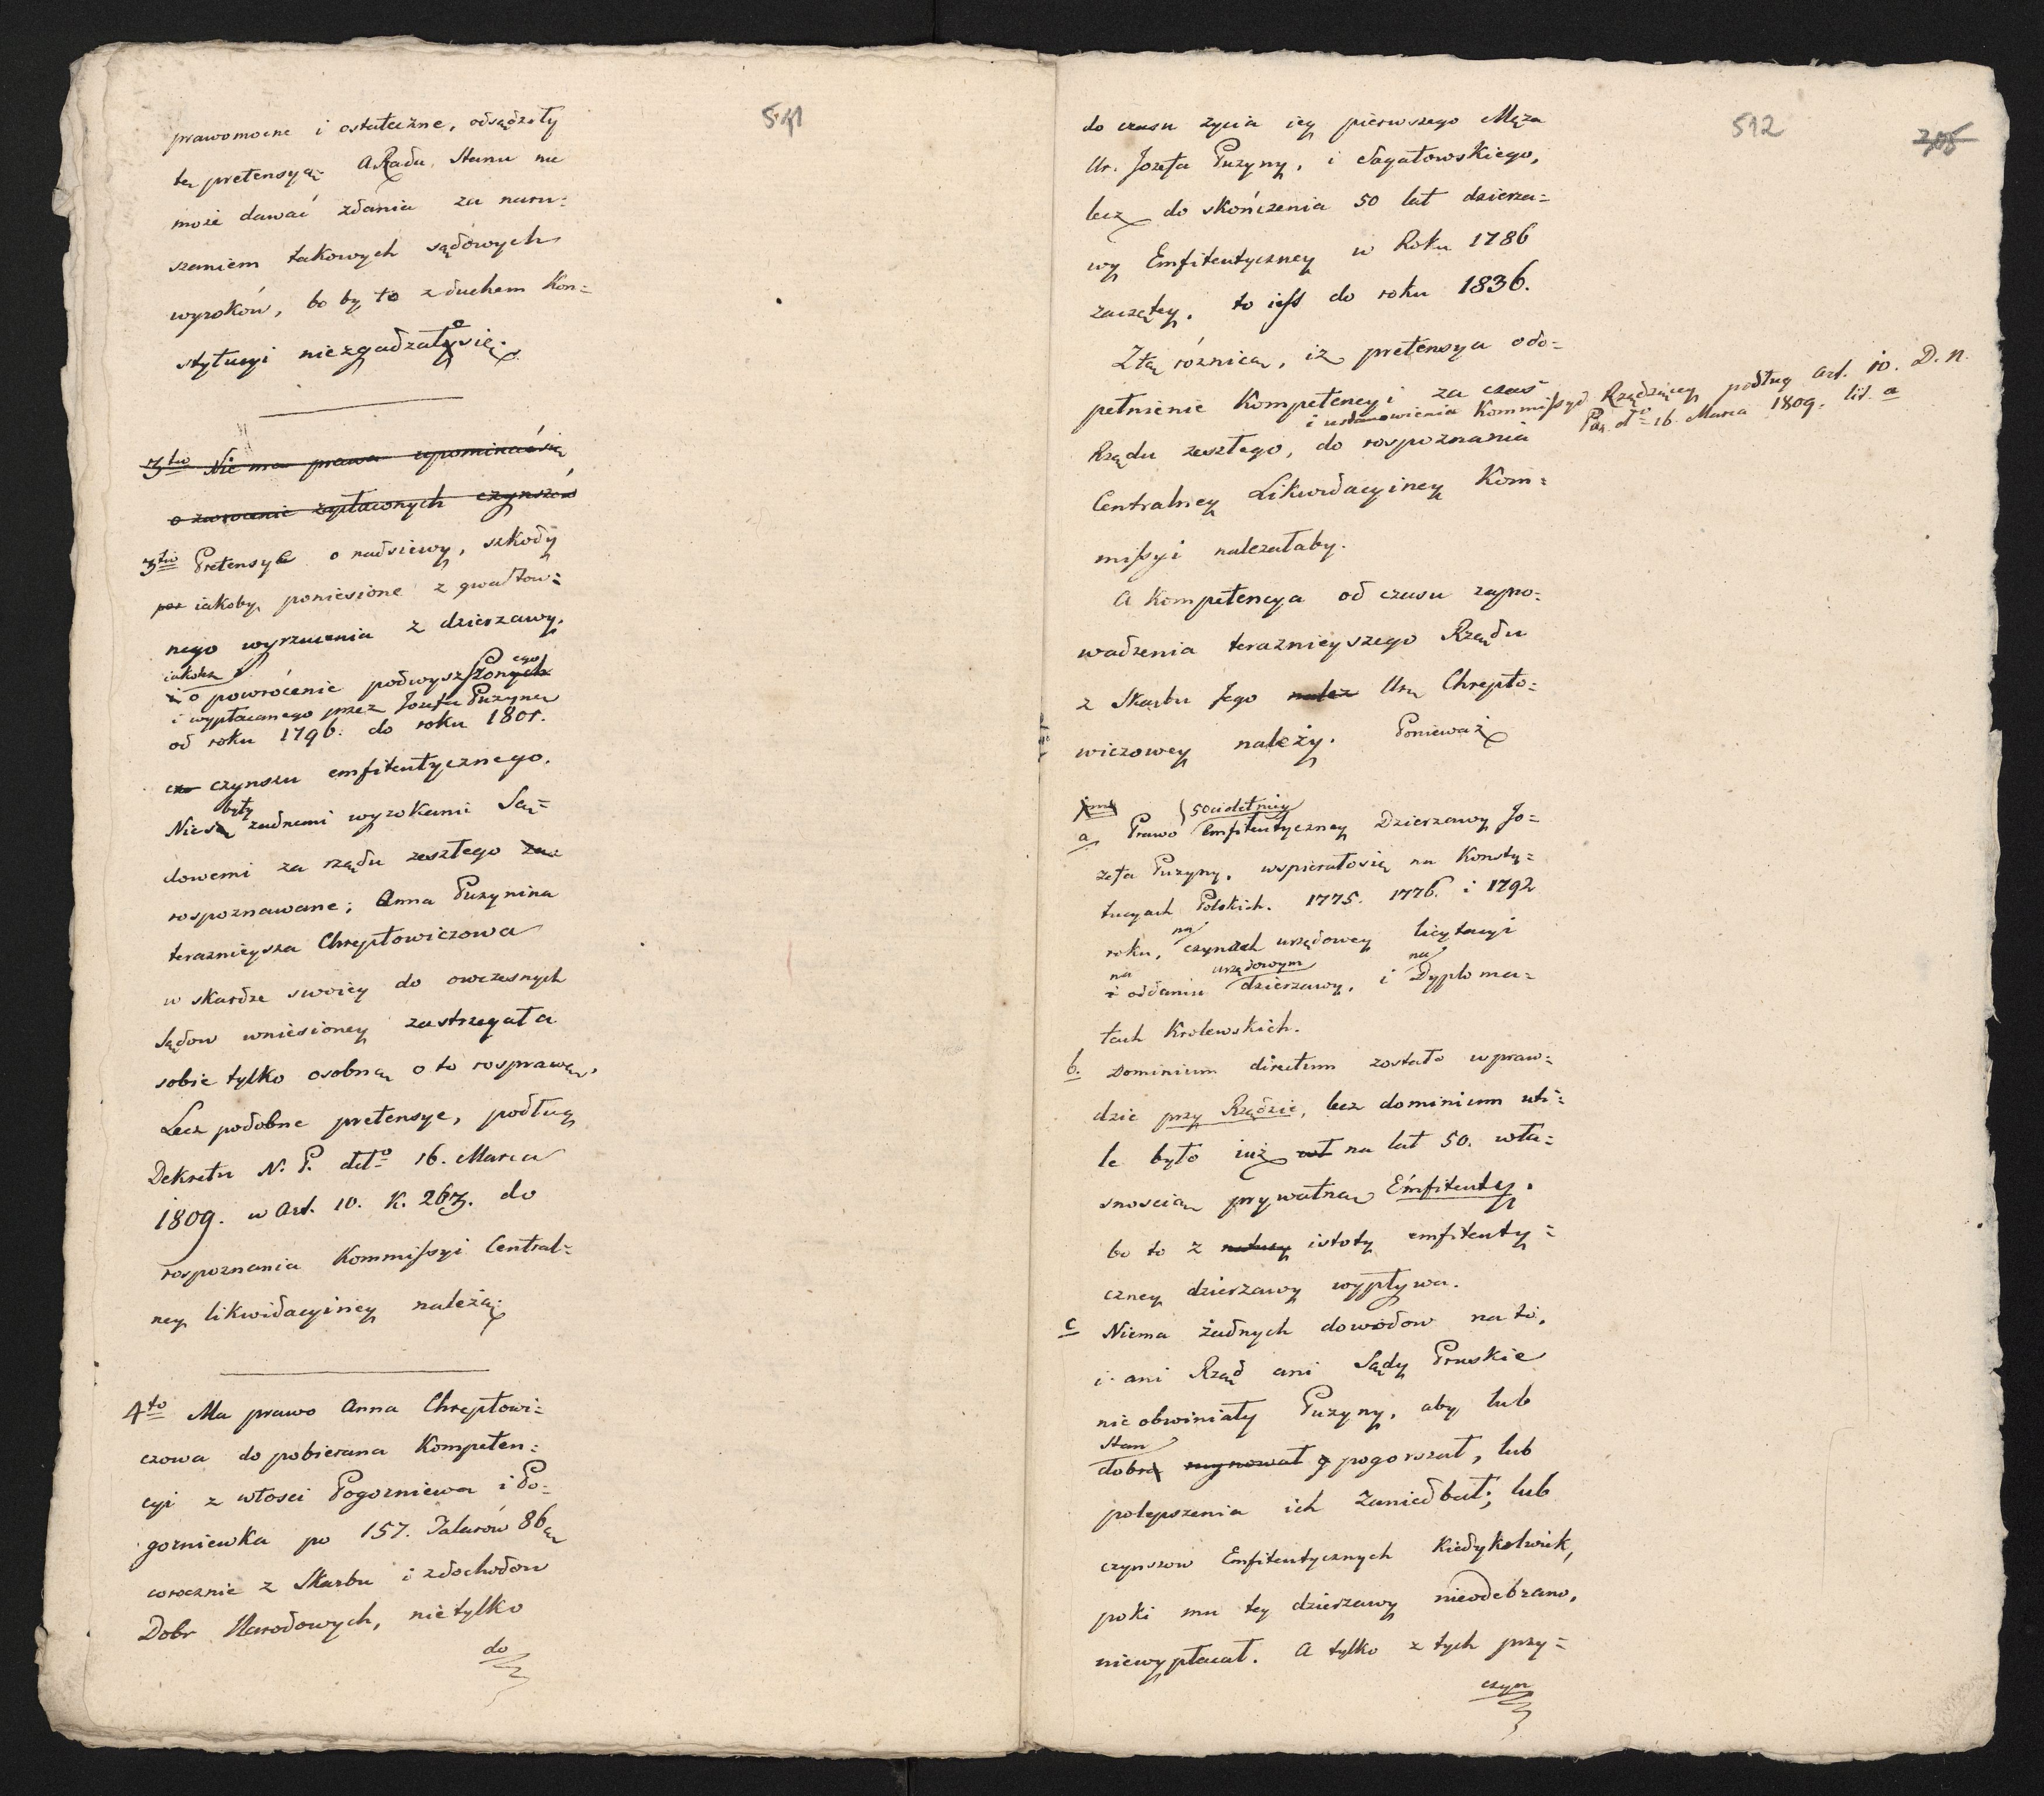 541
prawomocne i ostateczne, odsądzały
tę pretensyą. A Rada Stanu nie
może dawać zdania za naru=
szeniem takowych sądowych
wyroków, bo by to z duchem Kon=
stytucyi niezgadzało się.
3tio Nie ma prawa upominać się
o zwrocenie zapłaconych czynszów
3tio Pretensye o nadsiewy, szkody
iakoby poniesione z gwałtow=
nego wyrzucenia z dzierzawy,
iakoteż
i o powrócenie podwyszszonego
i wypłacanego przez Jozefa Puzynę
od roku 1796. do roku 1801.
czynszu emfiteutycznego.
były
Nie żadnemi wyrokami Są=
dowemi za rządu zeszłego
rospoznawane; Anna Puzynina
teraznieysza Chreptowiczowa
w skardze swoiey do owczesnych
Sądow wniesioney zastrzegała
sobie tylko osobną o to rosprawę.
Lecz podobne pretensye, podług
Dekretu N. P. dtto 16. Marca
1809. w Art. 10. K. 263. do
rospoznania Kommissyi Central=
ney likwidacyiney należą.
4to Ma prawo Anna Chreptowi=
czowa do pobierana Kompeten=
cyi z włosci Pogorniewa i Po=
gorniewka po 157. Talarów 86
corocznie z Skarbu i z dochodow
Dobr Narodowych, nie tylko
do
512
305
do czasu zycia iey pierwszego Męza
Ur. Jozefa Puzyny, i Sagatowskiego,
lecz do skończenia 50 lat dzierza=
wy Emfiteutyczney w Roku 1786
zaczętey, to iest do roku 1836.
Z tą róznicą, iż pretensya o do=
pełnienie Kompetencyi za czas
i ustanowienia Kommissyi Rządzącey podług Art. 10. D. N.
Pa. dto 16. Marca 1809. lit. a
Rządu zeszłego, do rospoznania
Centralney Likwidacyiney Kom=
missyi nalezałaby.
A Kompetencya od czasu zapro=
wadzenia teraznieyszego Rządu
z Skarbu Jego nalez Urę Chrepto=
wiczowey należy. Ponieważ
1mo
50cioletniey
a Prawo emfiteutyczney Dzierzawy Jo=
zefa Puzyny, wspierało się na Konsty=
tucyach Polskich. 1775. 1776. i 1792
na
roku, czynach urzędowey licytacyi
na urzędowym na
i oddaniu dzierzawy, i Dyploma=
tach Krolewskich.
b. Dominium directum zostało wpraw=
dzie przy Rządzie, lecz dominium uti=
le było iuż na lat 50. wła=
snoscią prywatną Emfiteuty.
bo to z natury istoty emfiteuty=
czney dzierzawy wypływa.
c Niema żadnych dowodow na to,
i ani Rząd ani Sądy Pruskie
nie obwiniały Puzyny, aby lub
stan
dobra ruynował pogorszał, lub
polepszenia ich zaniedbał; lub
czynszow Emfiteutycznych kiedykolwiek,
poki mu tey dzierzawy nieodebrano,
niewypłacał. A tylko z tych przy=
czyn